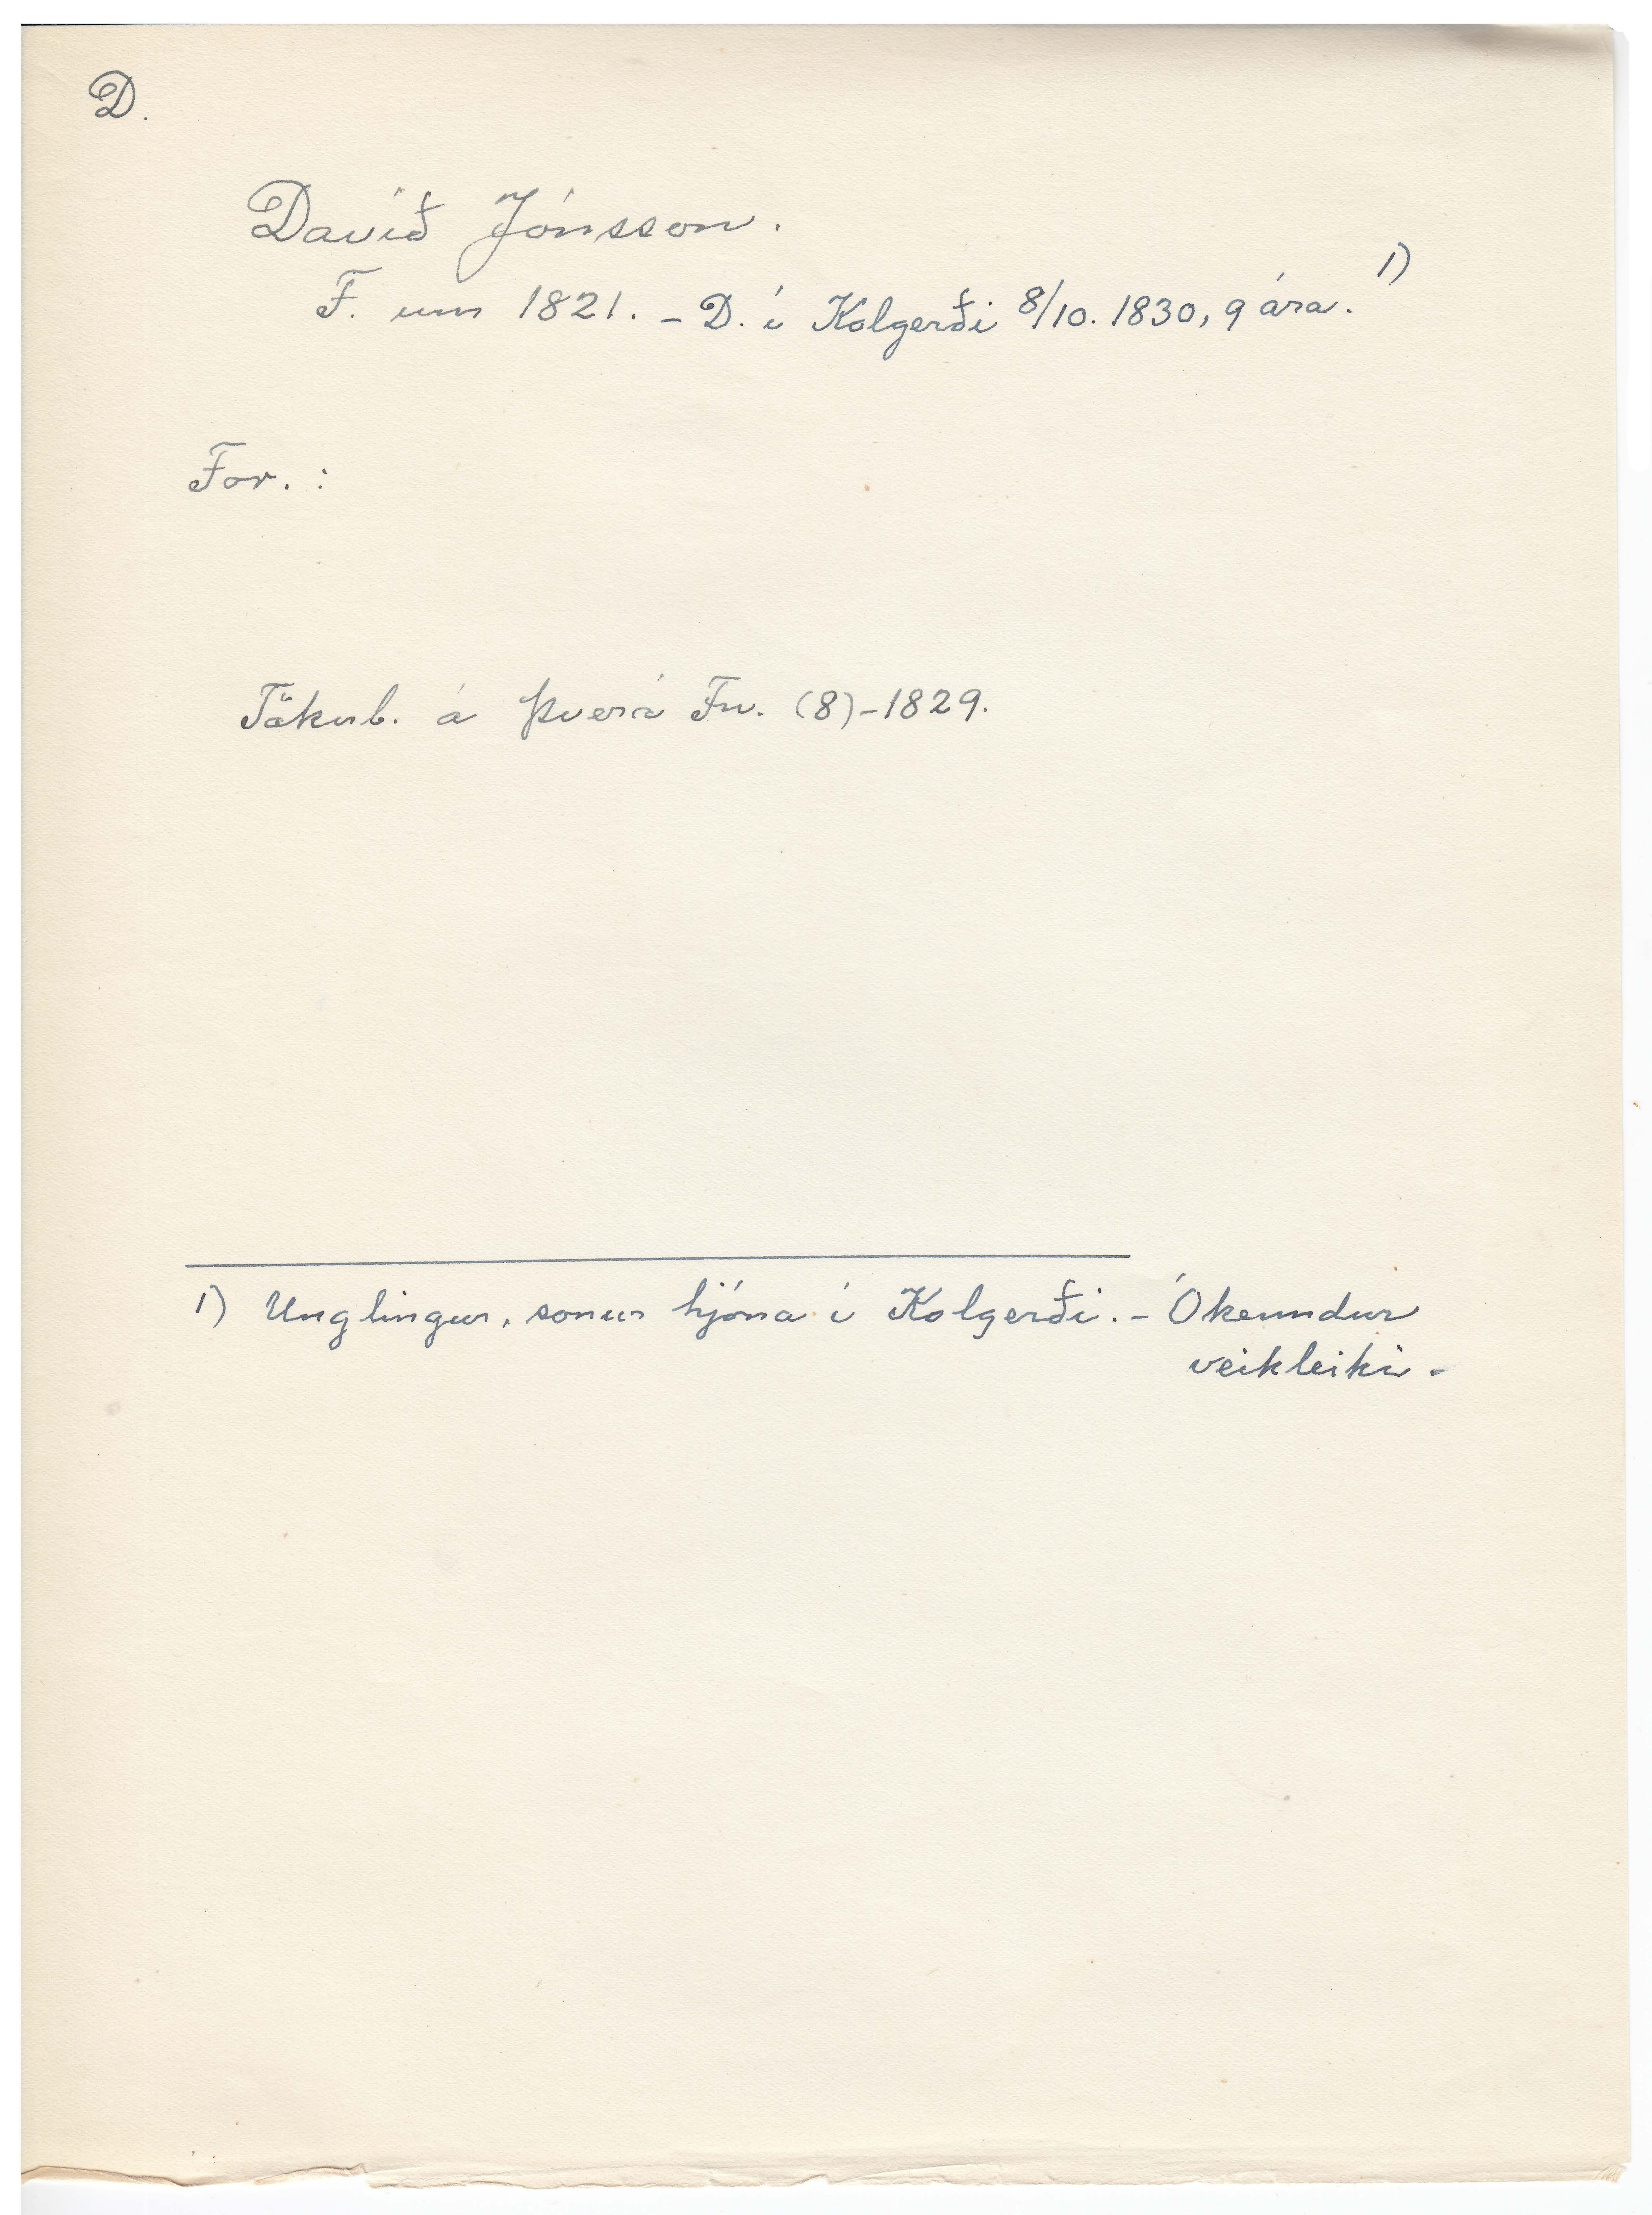 D.
Davíð Jónsson.
F. um 1821. - D. í Kolgerði 8/10. 1830, 9 ára. 1)
For. :
Tökub. á Þverá Fn. (8)-1829.
1) Unglingur, sonur hjóna í Kolgerði. - Ókenndur
veikleiki -